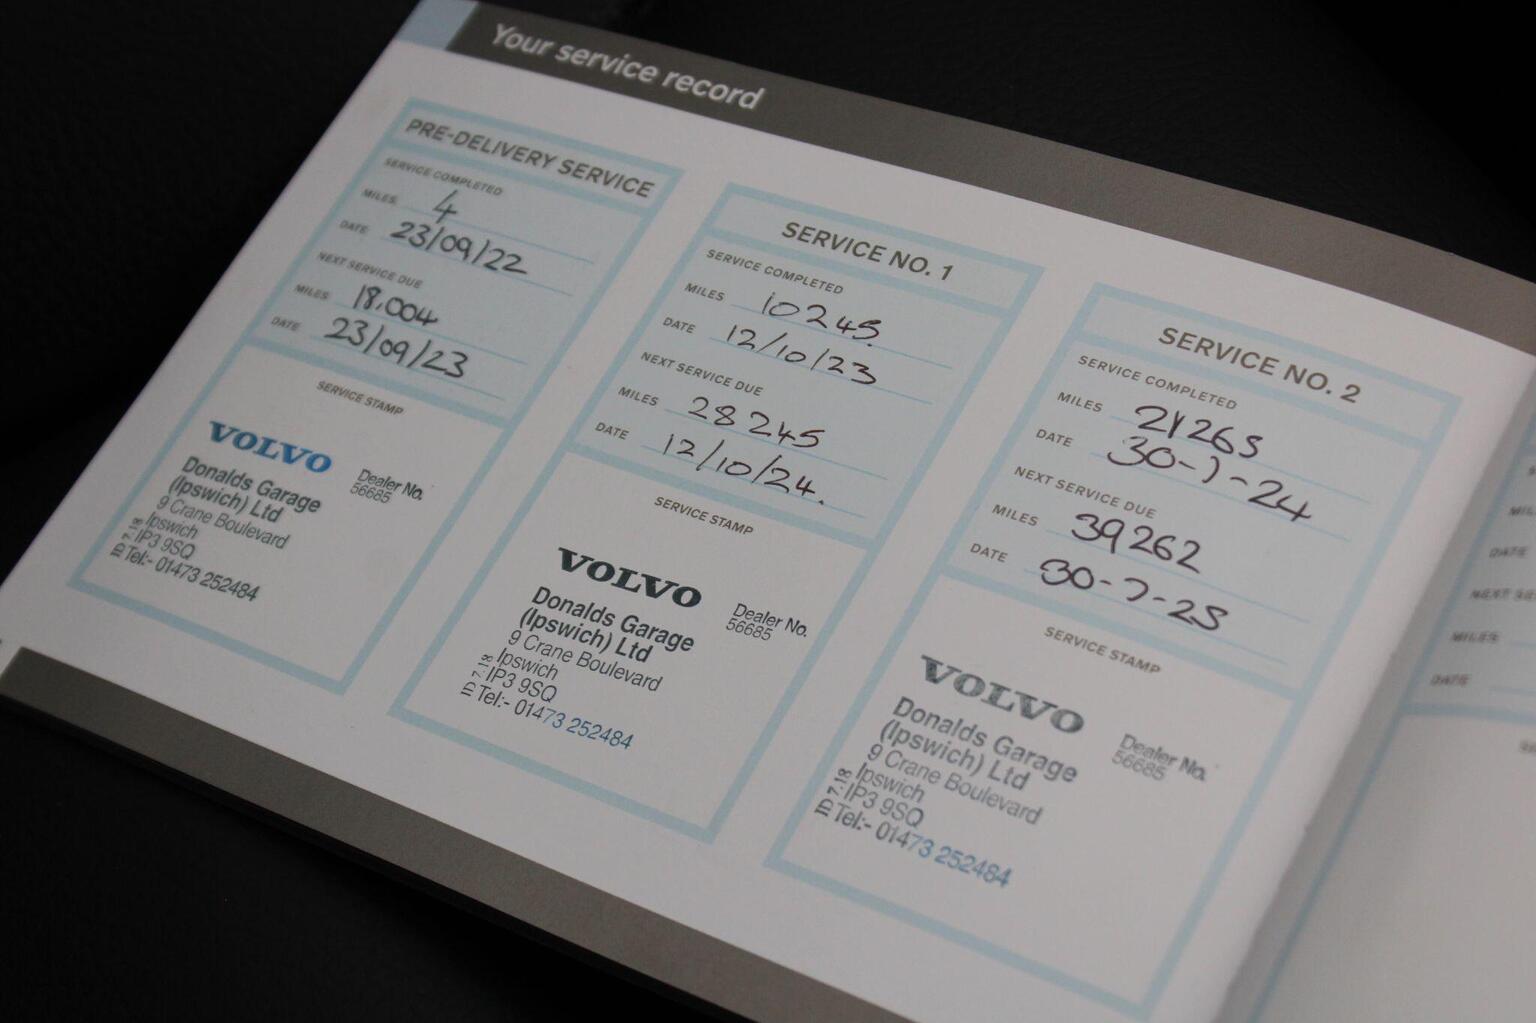 Your service record
PRE-DELIVERY SERVICE
SERVICE COMPLETED
MILES 4
DATE 23/09/22
NEXT SERVICE DUE
MILES 18,004
DATE 23/09/23
SERVICE STAMP
VOLVO
Donalds Garage
(Ipswich) Ltd
9 Crane Boulevard
Ipswich
IP3 9SQ
Tel:- 01473 252484
Dealer No.
56685
SERVICE NO. 1
SERVICE COMPLETED
MILES 10245
DATE 12/10/23
NEXT SERVICE DUE
MILES 28245
DATE 12/10/24.
SERVICE STAMP
VOLVO
Donalds Garage
(Ipswich) Ltd
9 Crane Boulevard
Ipswich
IP3 9SQ
Tel:- 01473 252484
Dealer No.
56685
SERVICE NO. 2
SERVICE COMPLETED
MILES
DATE 30-7-24
NEXT SERVICE DUE
MILES 39262
DATE 30-7-25
SERVICE STAMP
VOLVO
Donalds Garage
(Ipswich) Ltd
9 Crane Boulevard
Ipswich
IP3 9SQ
Tel:- 01473 252484
Dealer No.
56685
DATE
MILES
DATE